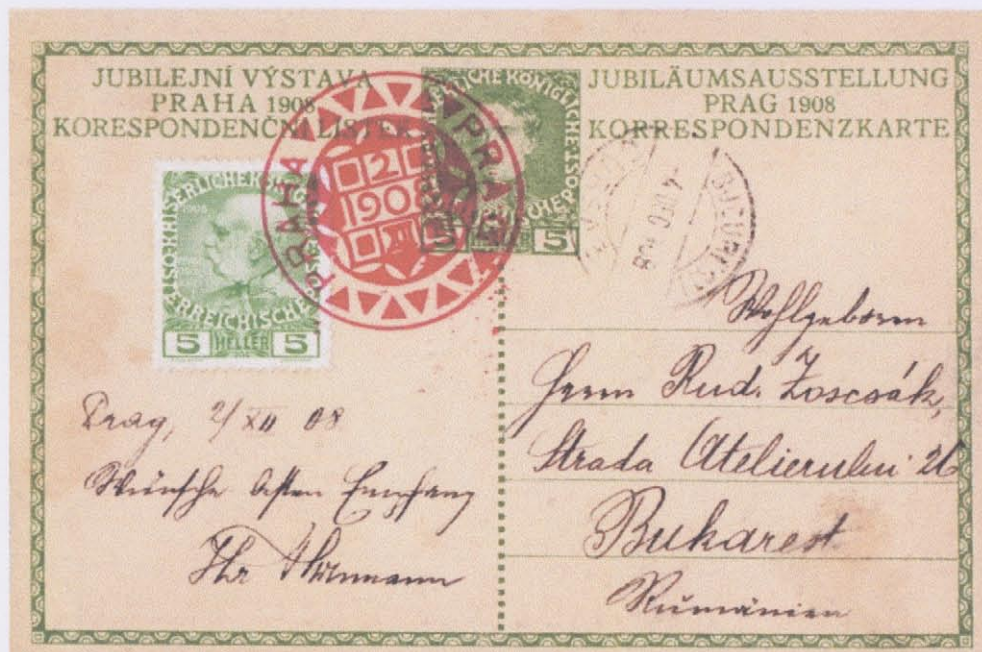 JUBILEJNÍ VÝSTAVA
PRAHA 1908
KORESPONDENČNÍ LÍSTEK
JUBILÄUMSAUSSTELLUNG
PRAG 1908
KORRESPONDENZKARTE
PRAHA PRAG
2
1908
XII
5 HELLER 5
5
Prag, 2/XII 08
Wünsche besten Empfang
Ihr
Wohlgeboren
Herrn Rud.
Strada Atelierului 26
Bukarest
Rumänien